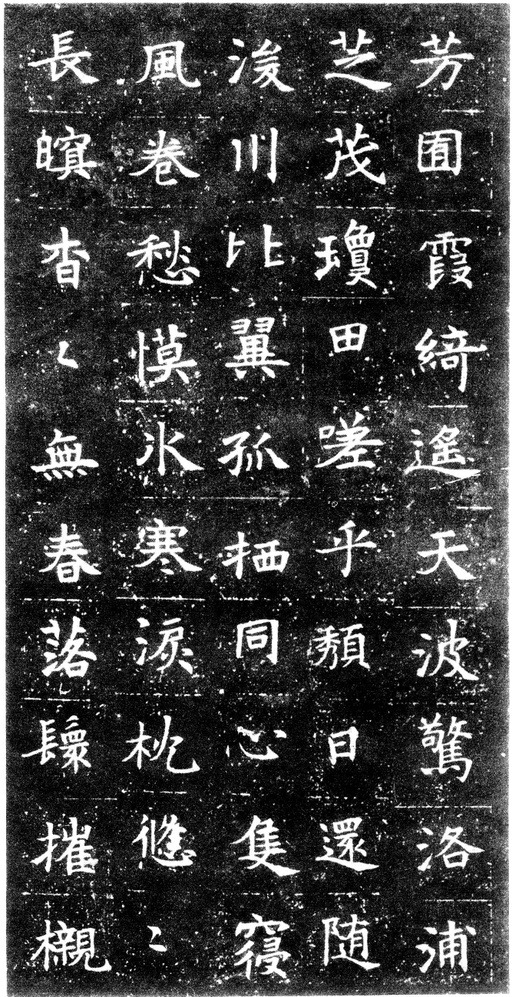 芳囿霞綺遙天波驚洛浦
芝茂瓊田嗟乎頹日還随
浚川比翼孤栖同心隻寑
風卷愁慔氷寒淚枕悠〻
長暝杳〻無春落鬟摧櫬